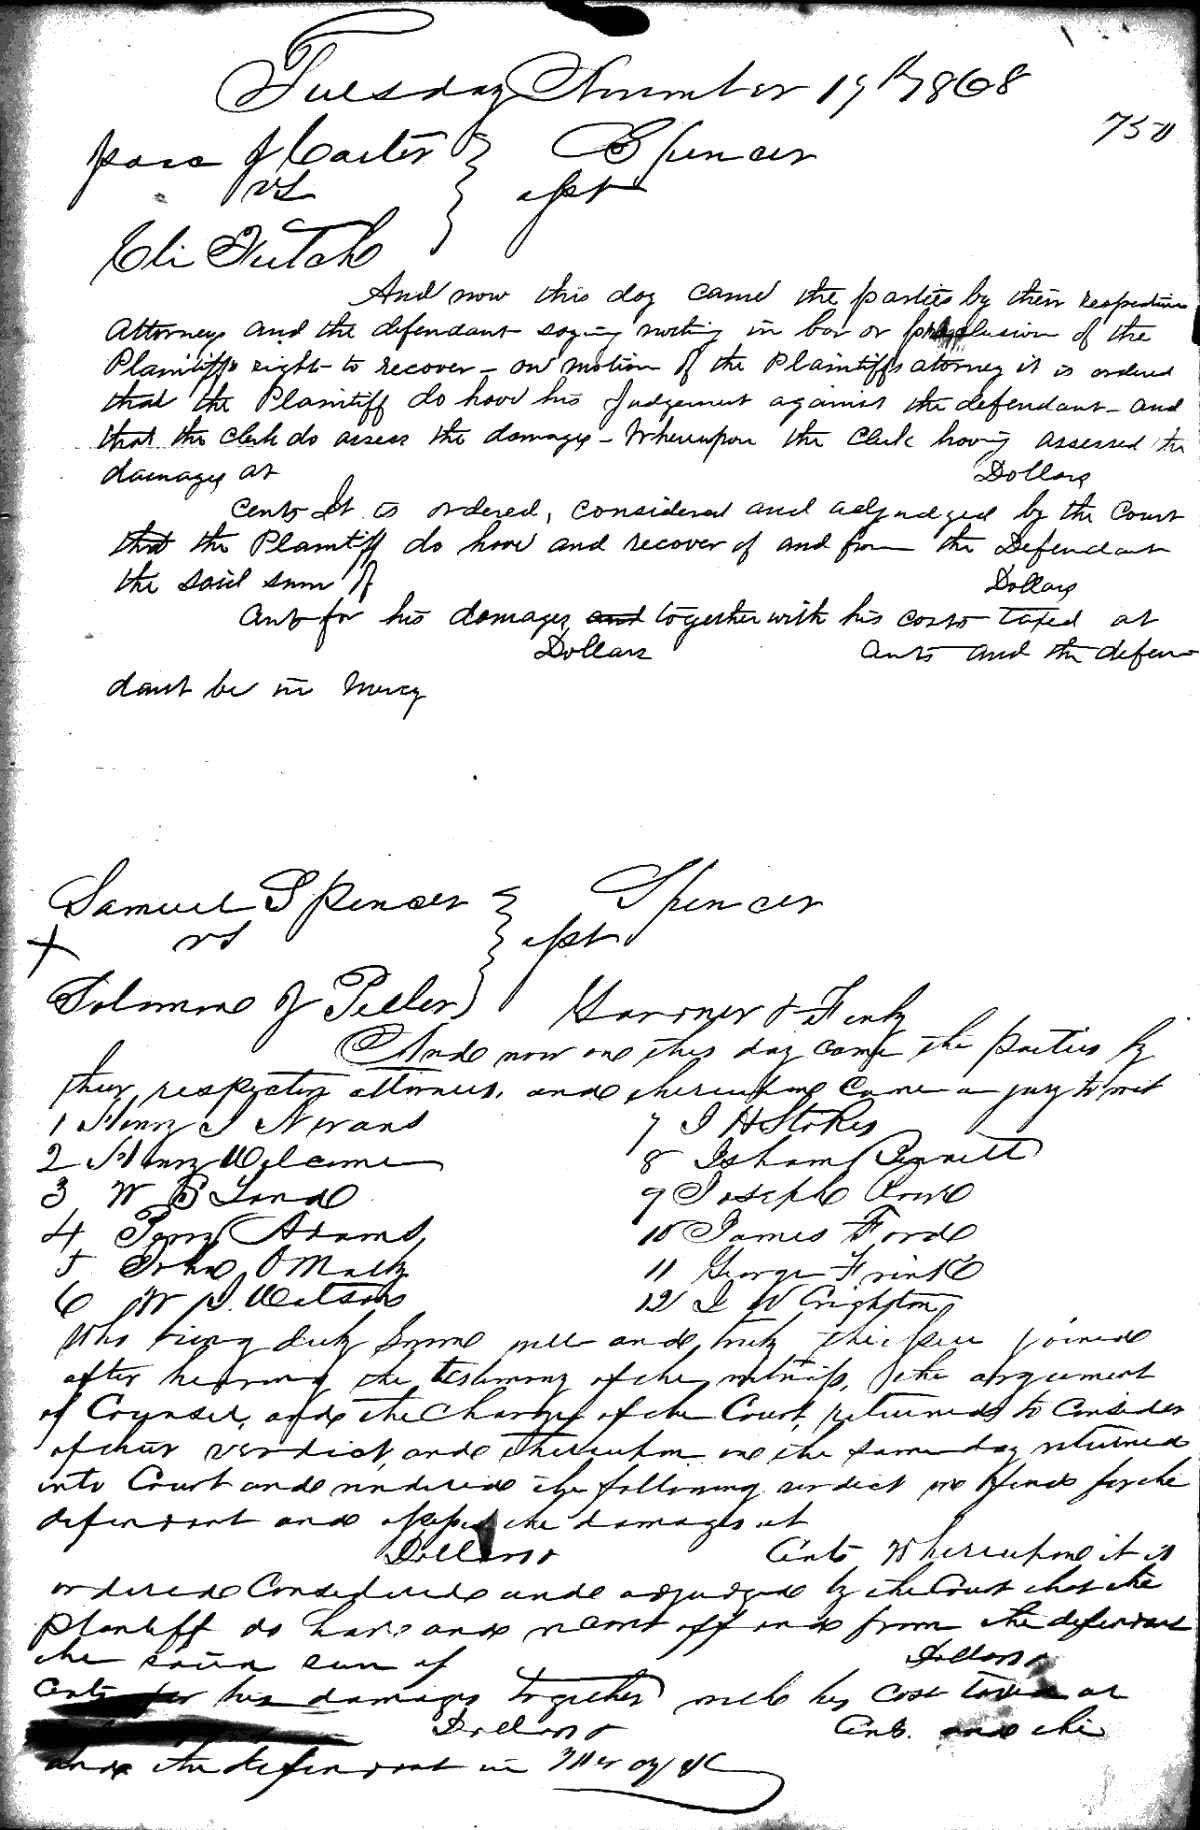 Tuesday November 19th 1868
750
J Carter } Spencer
vs } apt
Eli Futch
And now this day came the parties by their respective
Attorneys and the defendant saying nothing in bar or preclusion of the
Plaintiffs right to recover - on motion of the Plaintiffs attorney it is ordered
that the Plaintiff do have his Judgement against the defendant - and
that the Clerk do assess the damages - Whereupon the Clerk having assessed the
damages at Dollars
cents It is ordered, considered and adjudged by the Court
that the Plaintiff do have and recover of and from the Defendant
the said sum of Dollars
Cents for his damages and together with his costs taxed at
Dollars Cents and the defen-
dant be in mercy
Samuel Spencer } Spencer
X vs } apt
Solomon J Peeler Gardner & Finly
And now on this day came the parties by
their respective attorneys. and thereupon came a jury to wit
1 Henry J Nevans 7 J H Stokes
2 Henry Welcome 8 Isham Bennett
3 W B Land 9 Joseph Rowe
4 Perry Adams 10 James Forde
5 John O Malty 11 George Frink
6 W J. Watson 12 J W Crighton
Who being duly sworn well and truly the issue joined
after hearing the testimony of the witness, the argument
of Counsel, and the Charge of the Court, returned to consider
of their verdict, and thereupon on the same day returned
into Court and rendered the following verdict we find for the
defendant and assess the damages at
Dollars & Cents Whereupon it is
ordered Considered and adjudged by the Court that the
plantiff do have and recover off and from the defendant
the said sum of Dollars &
Cents for his damages together with his cost taxed at
Dollars & Cents. and the
and the defendant in Mercy &C